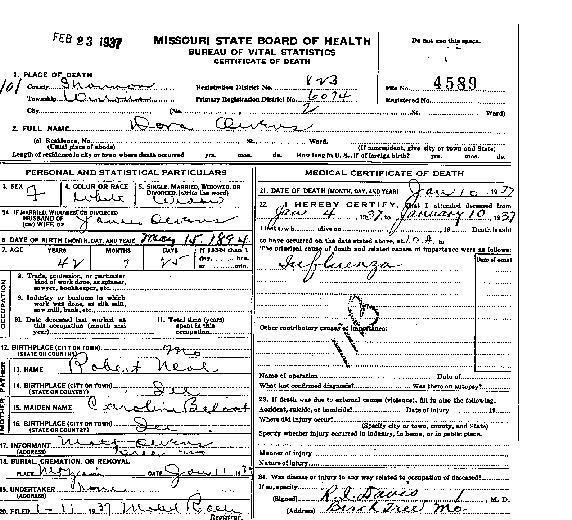 FEB 23 1937
MISSOURI STATE BOARD OF HEALTH
BUREAU OF VITAL STATISTICS
CERTIFICATE OF DEATH
Do not use this space.
1. PLACE OF DEATH
County Shannon
Registration District No. 823
File No. 4589
Township
Primary Registration District No. 6074
Registered No.
City (No. 2 St. Ward)
2. FULL NAME Dora Owens
(a) Residence, No. St. Ward.
(Usual place of abode) (If nonresident, give city or town and State)
Length of residence in city or town where death occurred yrs. mos. ds. How long in U. S., if of foreign birth? yrs. mos. ds.
PERSONAL AND STATISTICAL PARTICULARS
3. SEX F
4. COLOR OR RACE White
5. SINGLE, MARRIED, WIDOWED, OR DIVORCED (write the word)
5A. IF MARRIED, WIDOWED, OR DIVORCED
HUSBAND OF
(OR) WIFE OF James Owens
6. DATE OF BIRTH (MONTH, DAY, AND YEAR) May 15, 1894
7. AGE YEARS 42 MONTHS 7 DAYS 25 If LESS than 1 day, hrs. or min.
OCCUPATION
8. Trade, profession, or particular
kind of work done, as spinner,
sawyer, bookkeeper, etc.
9. Industry or business in which
work was done, as silk mill,
saw mill, bank, etc.
10. Date deceased last worked at
this occupation (month and
year)
11. Total time (years)
spent in this
occupation
12. BIRTHPLACE (CITY OR TOWN) Mo
(STATE OR COUNTRY)
FATHER
13. NAME Robert Neal
14. BIRTHPLACE (CITY OR TOWN)
(STATE OR COUNTRY)
MOTHER
15. MAIDEN NAME Caroline
16. BIRTHPLACE (CITY OR TOWN)
(STATE OR COUNTRY)
17. INFORMANT Owens
(ADDRESS)
18. BURIAL, CREMATION, OR REMOVAL
PLACE DATE Jan 11 1937
19. UNDERTAKER none
(ADDRESS)
20. FILED 1-11 1937 Mabel
Registrar.
MEDICAL CERTIFICATE OF DEATH
21. DATE OF DEATH (MONTH, DAY, AND YEAR) Jan 10 1937
22. I HEREBY CERTIFY, That I attended deceased from
Jan 4 1937, to January 10, 1937
I last saw h alive on 19 Death is said
to have occurred on the date stated above, at 10 A m.
The principal cause of death and related causes of importance were as follows:
Date of onset
Influenza
11B
Other contributory causes of importance:
Name of operation Date of
What test confirmed diagnosis? Was there an autopsy?
23. If death was due to external causes (violence), fill in also the following:
Accident, suicide, or homicide? Date of injury 19
Where did injury occur?
(Specify city or town, county, and State)
Specify whether injury occurred in industry, in home, or in public place.
Manner of injury
Nature of injury
24. Was disease or injury in any way related to occupation of deceased?
If so, specify
(Signed) R. I. Davis, M. D.
(Address) Birch Tree Mo.